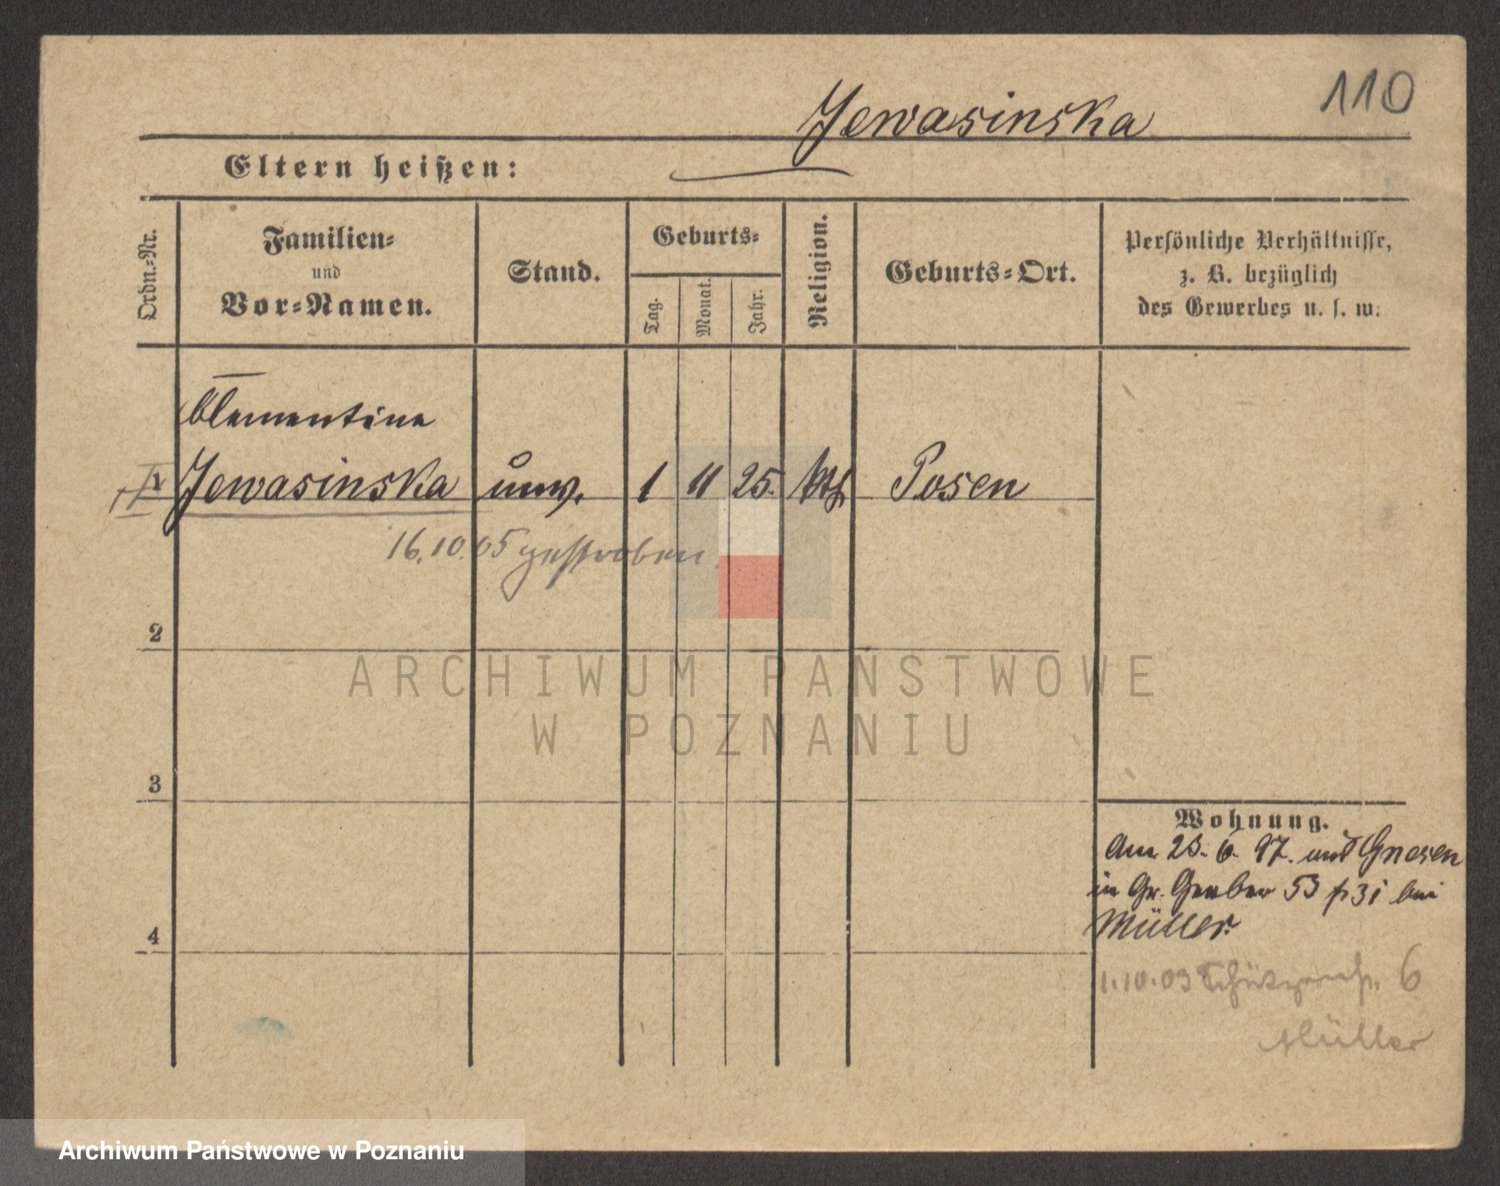 110
Jewasinska
Eltern heißen:
Ordn.-Nr.
Familien-
und
Vor-Namen.
Stand.
Geburts-
Tag.
Monat.
Jahr.
Religion.
Geburts-Ort.
Persönliche Verhältnisse,
z. B. bezüglich
des Gewerbes u. s. w.
Clementine
Jewasinska unv. 1 11 25. kth Posen
16.10.05 gestorben.
2
3
4
Wohnung.
Am 23. 6. 97. aus Gnesen
in Gr. Gerber 53 bei
Müller.
1.10.03 Schützenstr. 6
Müller
ARCHIWUM PAŃSTWOWE
W POZNANIU
Archiwum Państwowe w Poznaniu